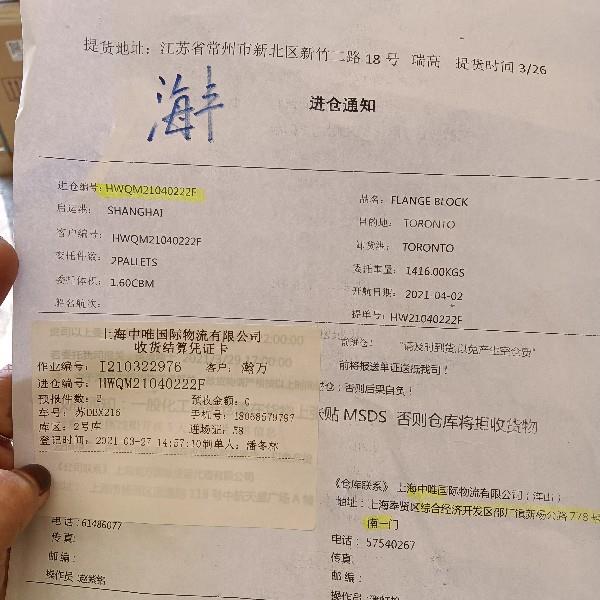 提货地址：江苏省常州市新北区新竹二路18号 瑞高 提货时间3/26
海丰
进仓通知
进仓编号：HWQM21040222F
品名：FLANGE BLOCK
启运港：SHANGHAI
目的地：TORONTO
客户编号：HWQM21040222F
卸货港：TORONTO
委托件数：2PALLETS
委托重量：1416.00KGS
委托体积：1.60CBM
开航日期：2021-04-02
船名航次：
提单号：HW21040222F
上海中唯国际物流有限公司
收货结算凭证卡
作业编号：I210322976 客户：瀚万
进仓编号：HWQM21040222F
预报件数：2 预收金额：0
车号：苏DBX216 手机号：18068579797
库区：2号库 进场证：58
登记时间：2021-03-27 14:57:10制单人：潘冬林
"请及时到货,以免产生空舱费"
前将报送单证送抵我司！
否则后果自负！
贴MSDS 否则仓库将拒收货物
《仓库联系》上海中唯国际物流有限公司（洋山）
地址：上海奉贤区综合经济开发区邵厂镇新杨公路778号
南一门
电话：61486077
电话：57540267
传真：
传真：
邮编：
邮编：
操作员：